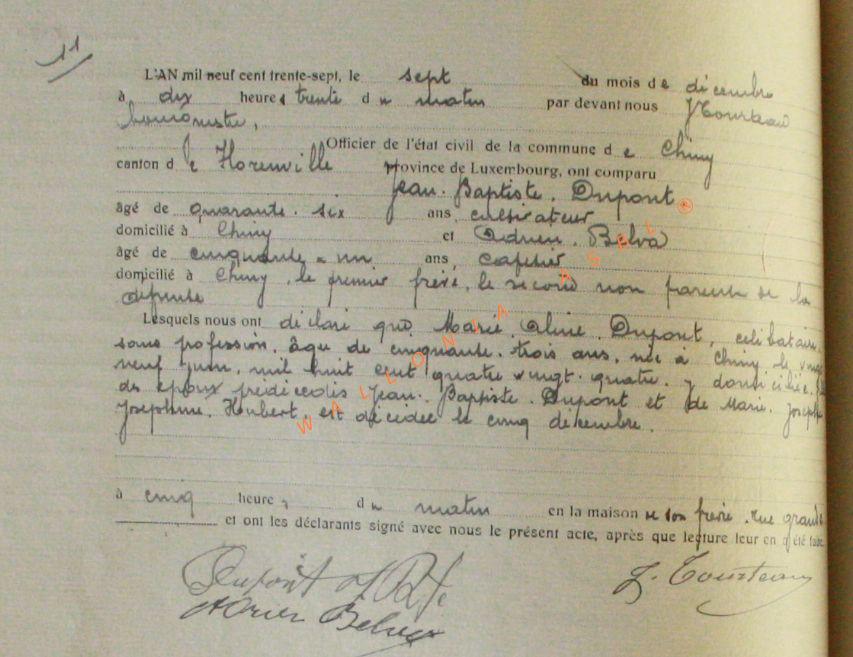 11
L'AN mil neuf cent trente-sept, le sept du mois de décembre
à dix heures trente du matin par devant nous
Officier de l'état civil de la commune de Chiny
canton de Florenville province de Luxembourg, ont comparu
Jean. Baptiste. Dupont
âgé de quarante-six ans, cultivateur
domicilié à Chiny et Adrien. Belva
âgé de cinquante-un ans, cafetier
domicilié à Chiny, le premier frère, le second non parent de la
défunte
Lesquels nous ont déclaré que Marie. Aline. Dupont, célibataire,
sans profession, âgée de cinquante-trois ans, née à Chiny le vingt
neuf juin, mil huit cent quatre vingt-quatre, y domiciliée,
des époux prédécédés Jean. Baptiste. Dupont et de Marie. Josèphe
Joséphine. Hubert, est décédée le cinq décembre.
à cinq heures du matin en la maison de son frère, rue grande
et ont les déclarants signé avec nous le présent acte, après que lecture leur en a été faite.
Dupont J. Bte
Adrien Belva
WALLONIA ASBL ®